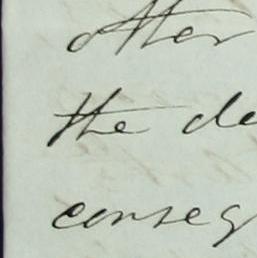 other
the de
conseq